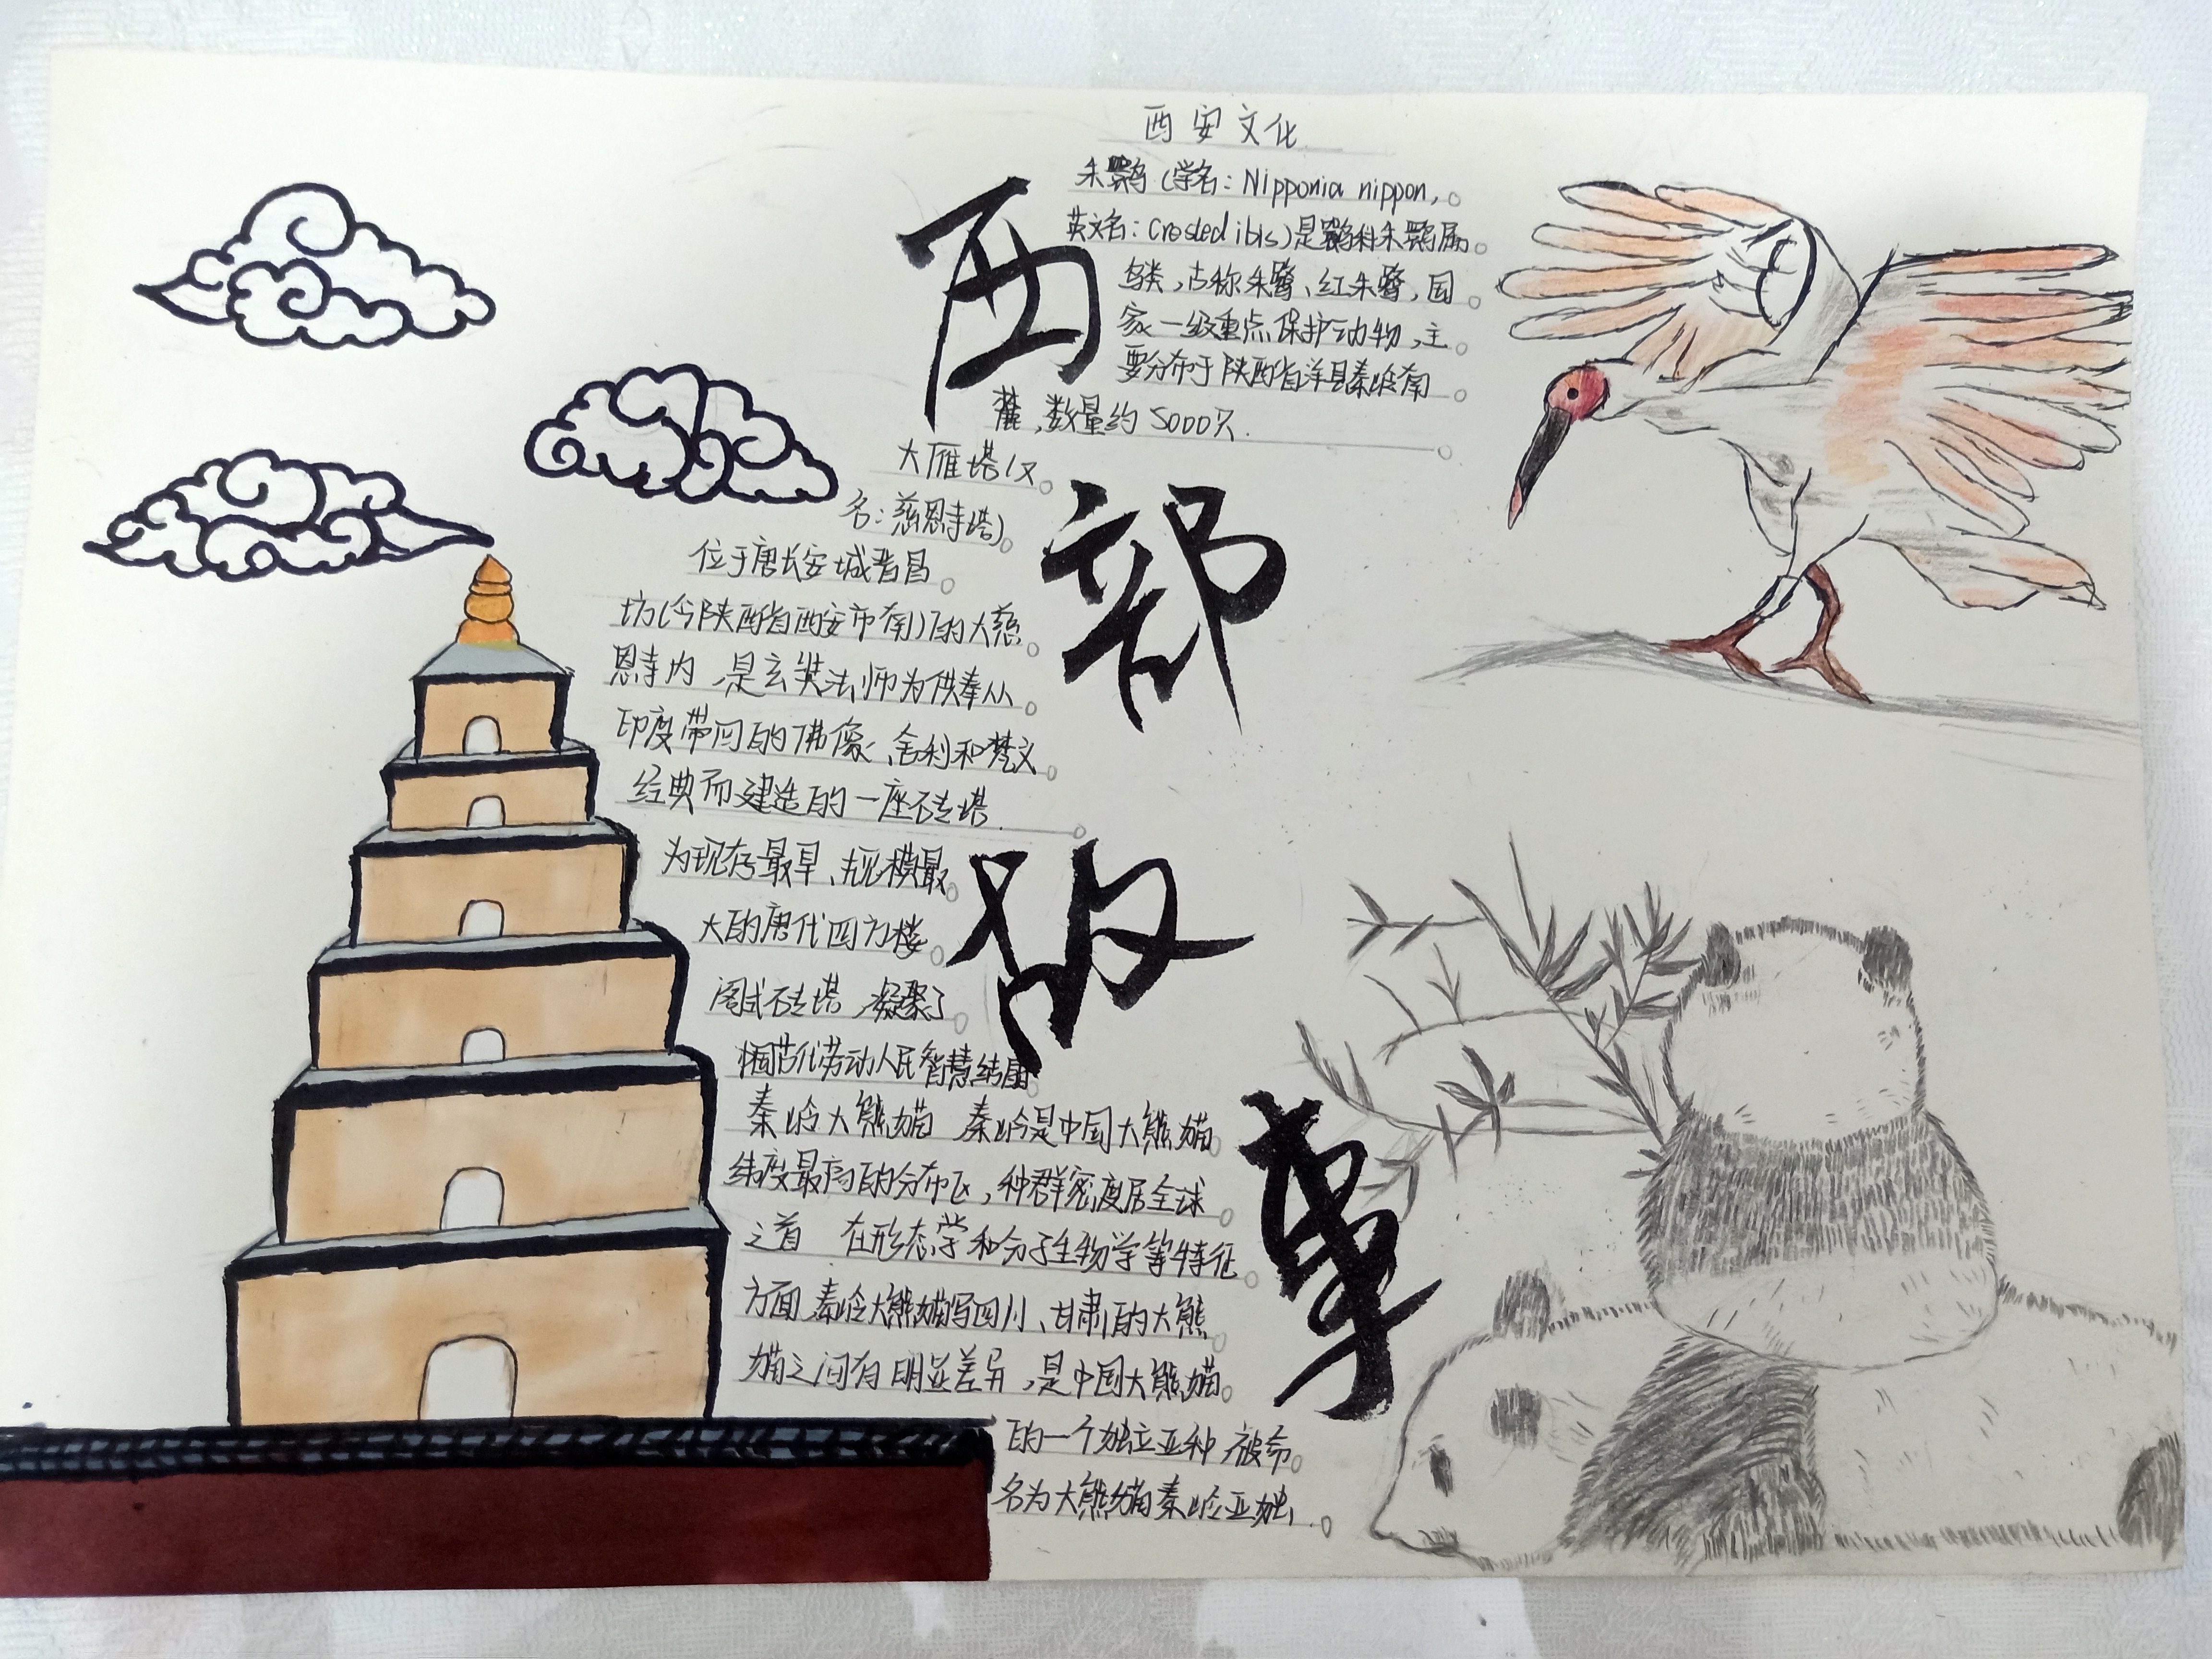 西安文化
朱鹮(学名：Nipponia nippon，
英文名：Crested ibis)是鹮科朱鹮属
鸟类，古称朱鹭、红朱鹭，国
家一级重点保护动物，主
要分布于陕西省洋县秦岭南
麓，数量约5000只.
大雁塔(又
名：慈恩寺塔)
位于唐长安城晋昌
坊(今陕西省西安市南)的大慈
恩寺内，是玄奘法师为供奉从
印度带回的佛像、舍利和梵文
经典而建造的一座砖塔.
为现存最早、规模最
大的唐代四方楼
阁式砖塔，凝聚了
劳动人民智慧结晶
秦岭大熊猫 秦岭是中国大熊猫
纬度最高的分布区，种群密度居全球
之首 在形态学和分子生物学等特征
方面，秦岭大熊猫写四川、甘肃的大熊
猫之间有明显差异，是中国大熊猫
的一个独立亚种 被命
名为大熊猫秦岭亚
西
部
故
事